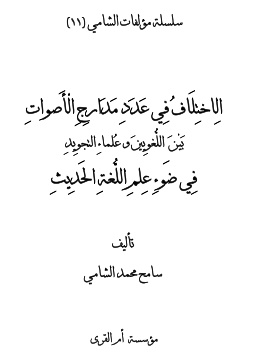 سلسلة مؤلفات الشامي (١١)
الِاخْتِلَافُ فِي عَدَدِ مَدَارِجِ الْأَصْوَاتِ
بَيْنَ اللُّغَوِيِّينَ وَعُلَمَاءِ التَّجْوِيدِ
فِي ضَوْءِ عِلْمِ اللُّغَةِ الْحَدِيثِ
تأليف
سامح محمد الشامي
مؤسسة أم القرى